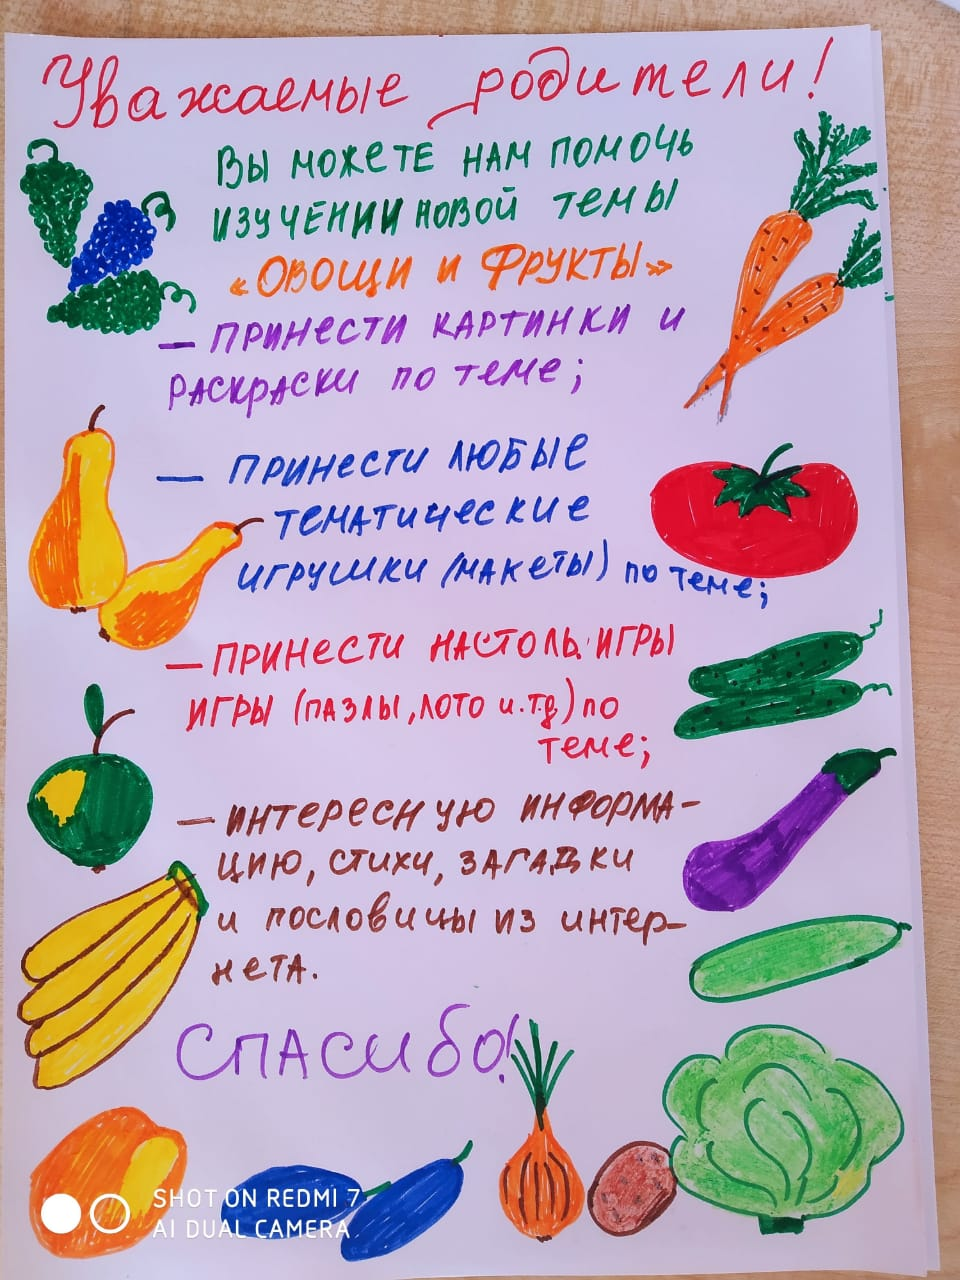 Уважаемые родители!
ВЫ МОЖЕТЕ НАМ ПОМОЧЬ
ИЗУЧЕНИИ НОВОЙ ТЕМЫ
«ОВОЩИ И ФРУКТЫ»
— ПРИНЕСТИ КАРТИНКИ И
РАСКРАСКИ ПО ТЕМЕ;
— ПРИНЕСТИ ЛЮБЫЕ
ТЕМАТИЧЕСКИЕ
ИГРУШКИ (МАКЕТЫ) ПО ТЕМЕ;
— ПРИНЕСТИ НАСТОЛЬ. ИГРЫ
ИГРЫ (ПАЗЛЫ, ЛОТО И.Т.Д) ПО
ТЕМЕ;
— ИНТЕРЕСНУЮ ИНФОРМА-
ЦИЮ, СТИХИ, ЗАГАДКИ
И ПОСЛОВИЦЫ ИЗ ИНТЕР-
НЕТА.
СПАСИБО!
SHOT ON REDMI 7
AI DUAL CAMERA